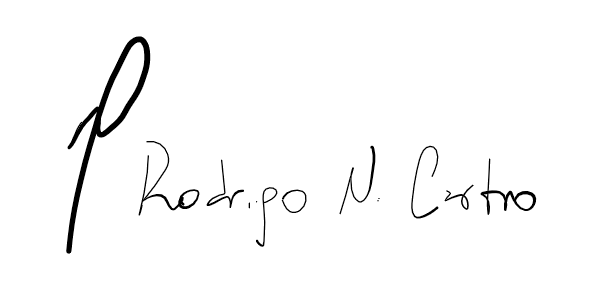 Rodrigo N. Castro